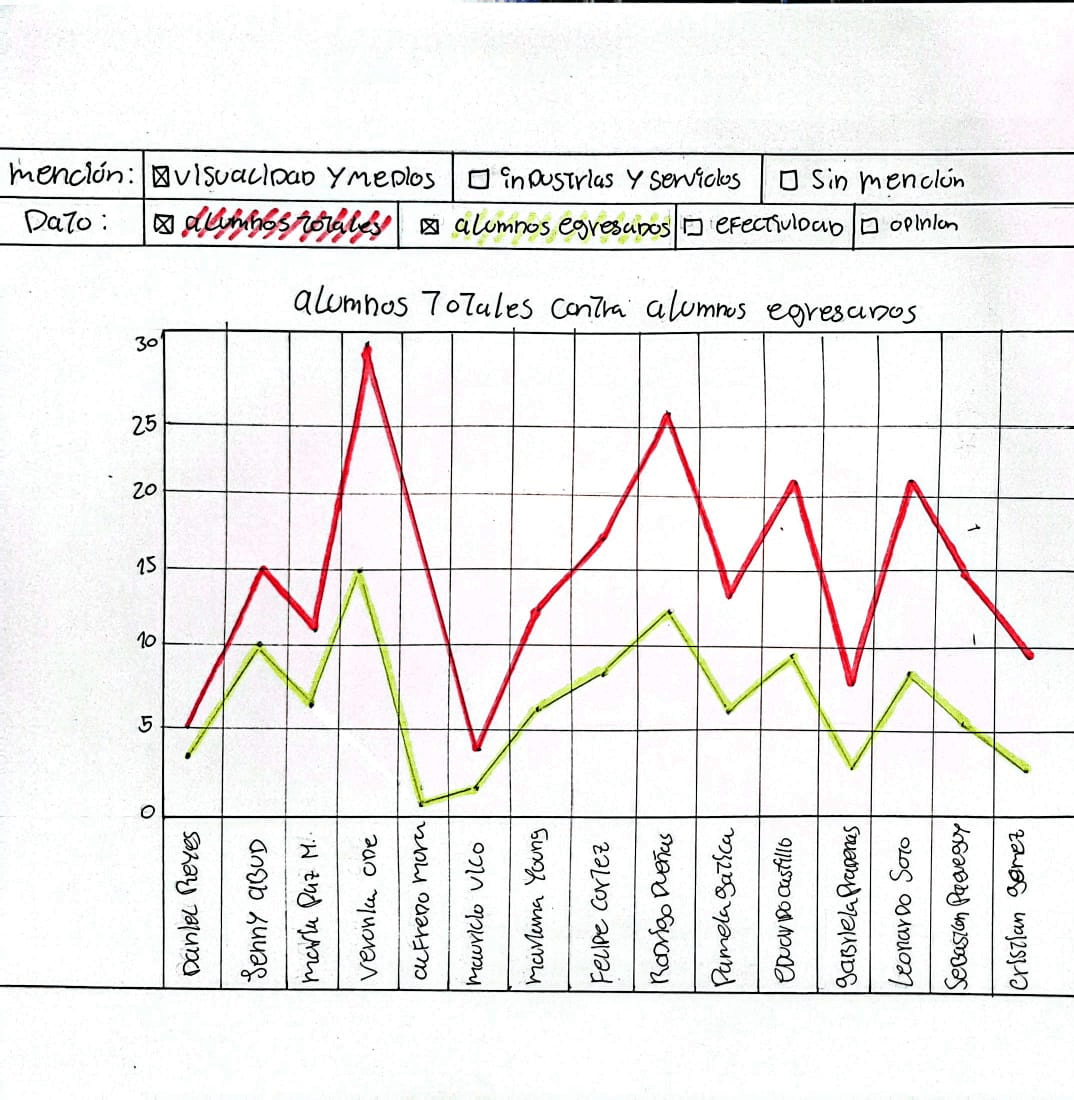 Mención: ☒ Visualidad y medios ☐ industrias y servicios ☐ Sin mención
Dato: ☒ alumnos totales ☒ alumnos egresados ☐ efectividad ☐ opinion
alumnos totales contra alumnos egresados
30
25
20
15
10
5
0
Daniel Reyes
Jenny abud
María Paz M.
Veronika One
alfredo mora
mauricio vico
mariana Young
Felipe Cortez
Rodrigo Dueñas
Pamela gatica
eduardo castillo
gabriela
Leonardo Soto
Sebastian
cristian gomez